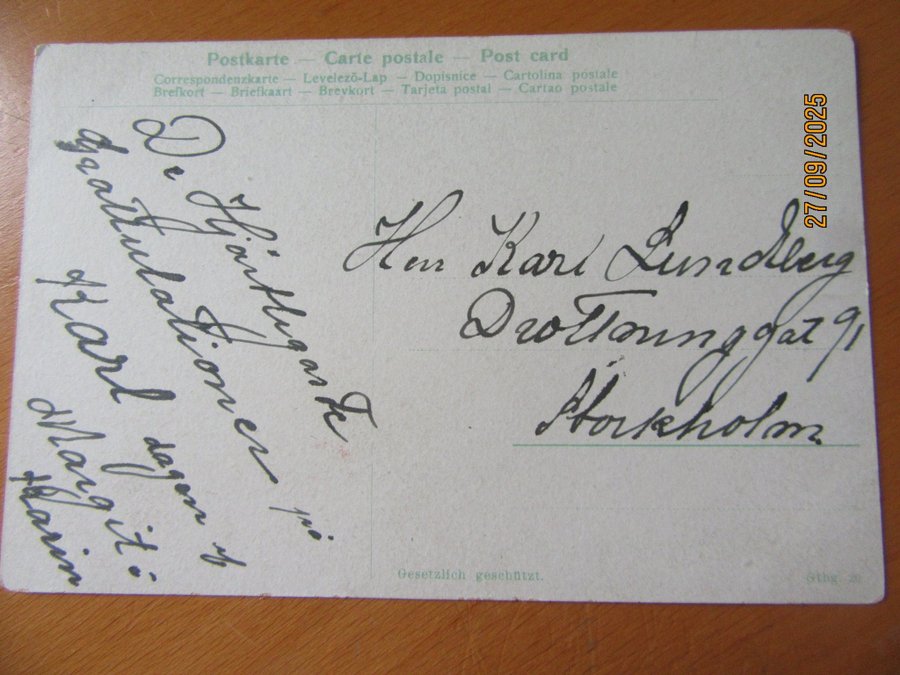 Postkarte — Carte postale — Post card
Correspondenzkarte — Levelező-Lap — Dopisnice — Cartolina postale
Brefkort — Briefkaart — Brevkort — Tarjeta postal — Cartao postale
De Hjärtligaste
Grattulationer på
Karl dagen
Margit o
Karin
Herr Karl Lundberg
Drottninggat 91
Stockholm
Gesetzlich geschützt.
27/09/2025